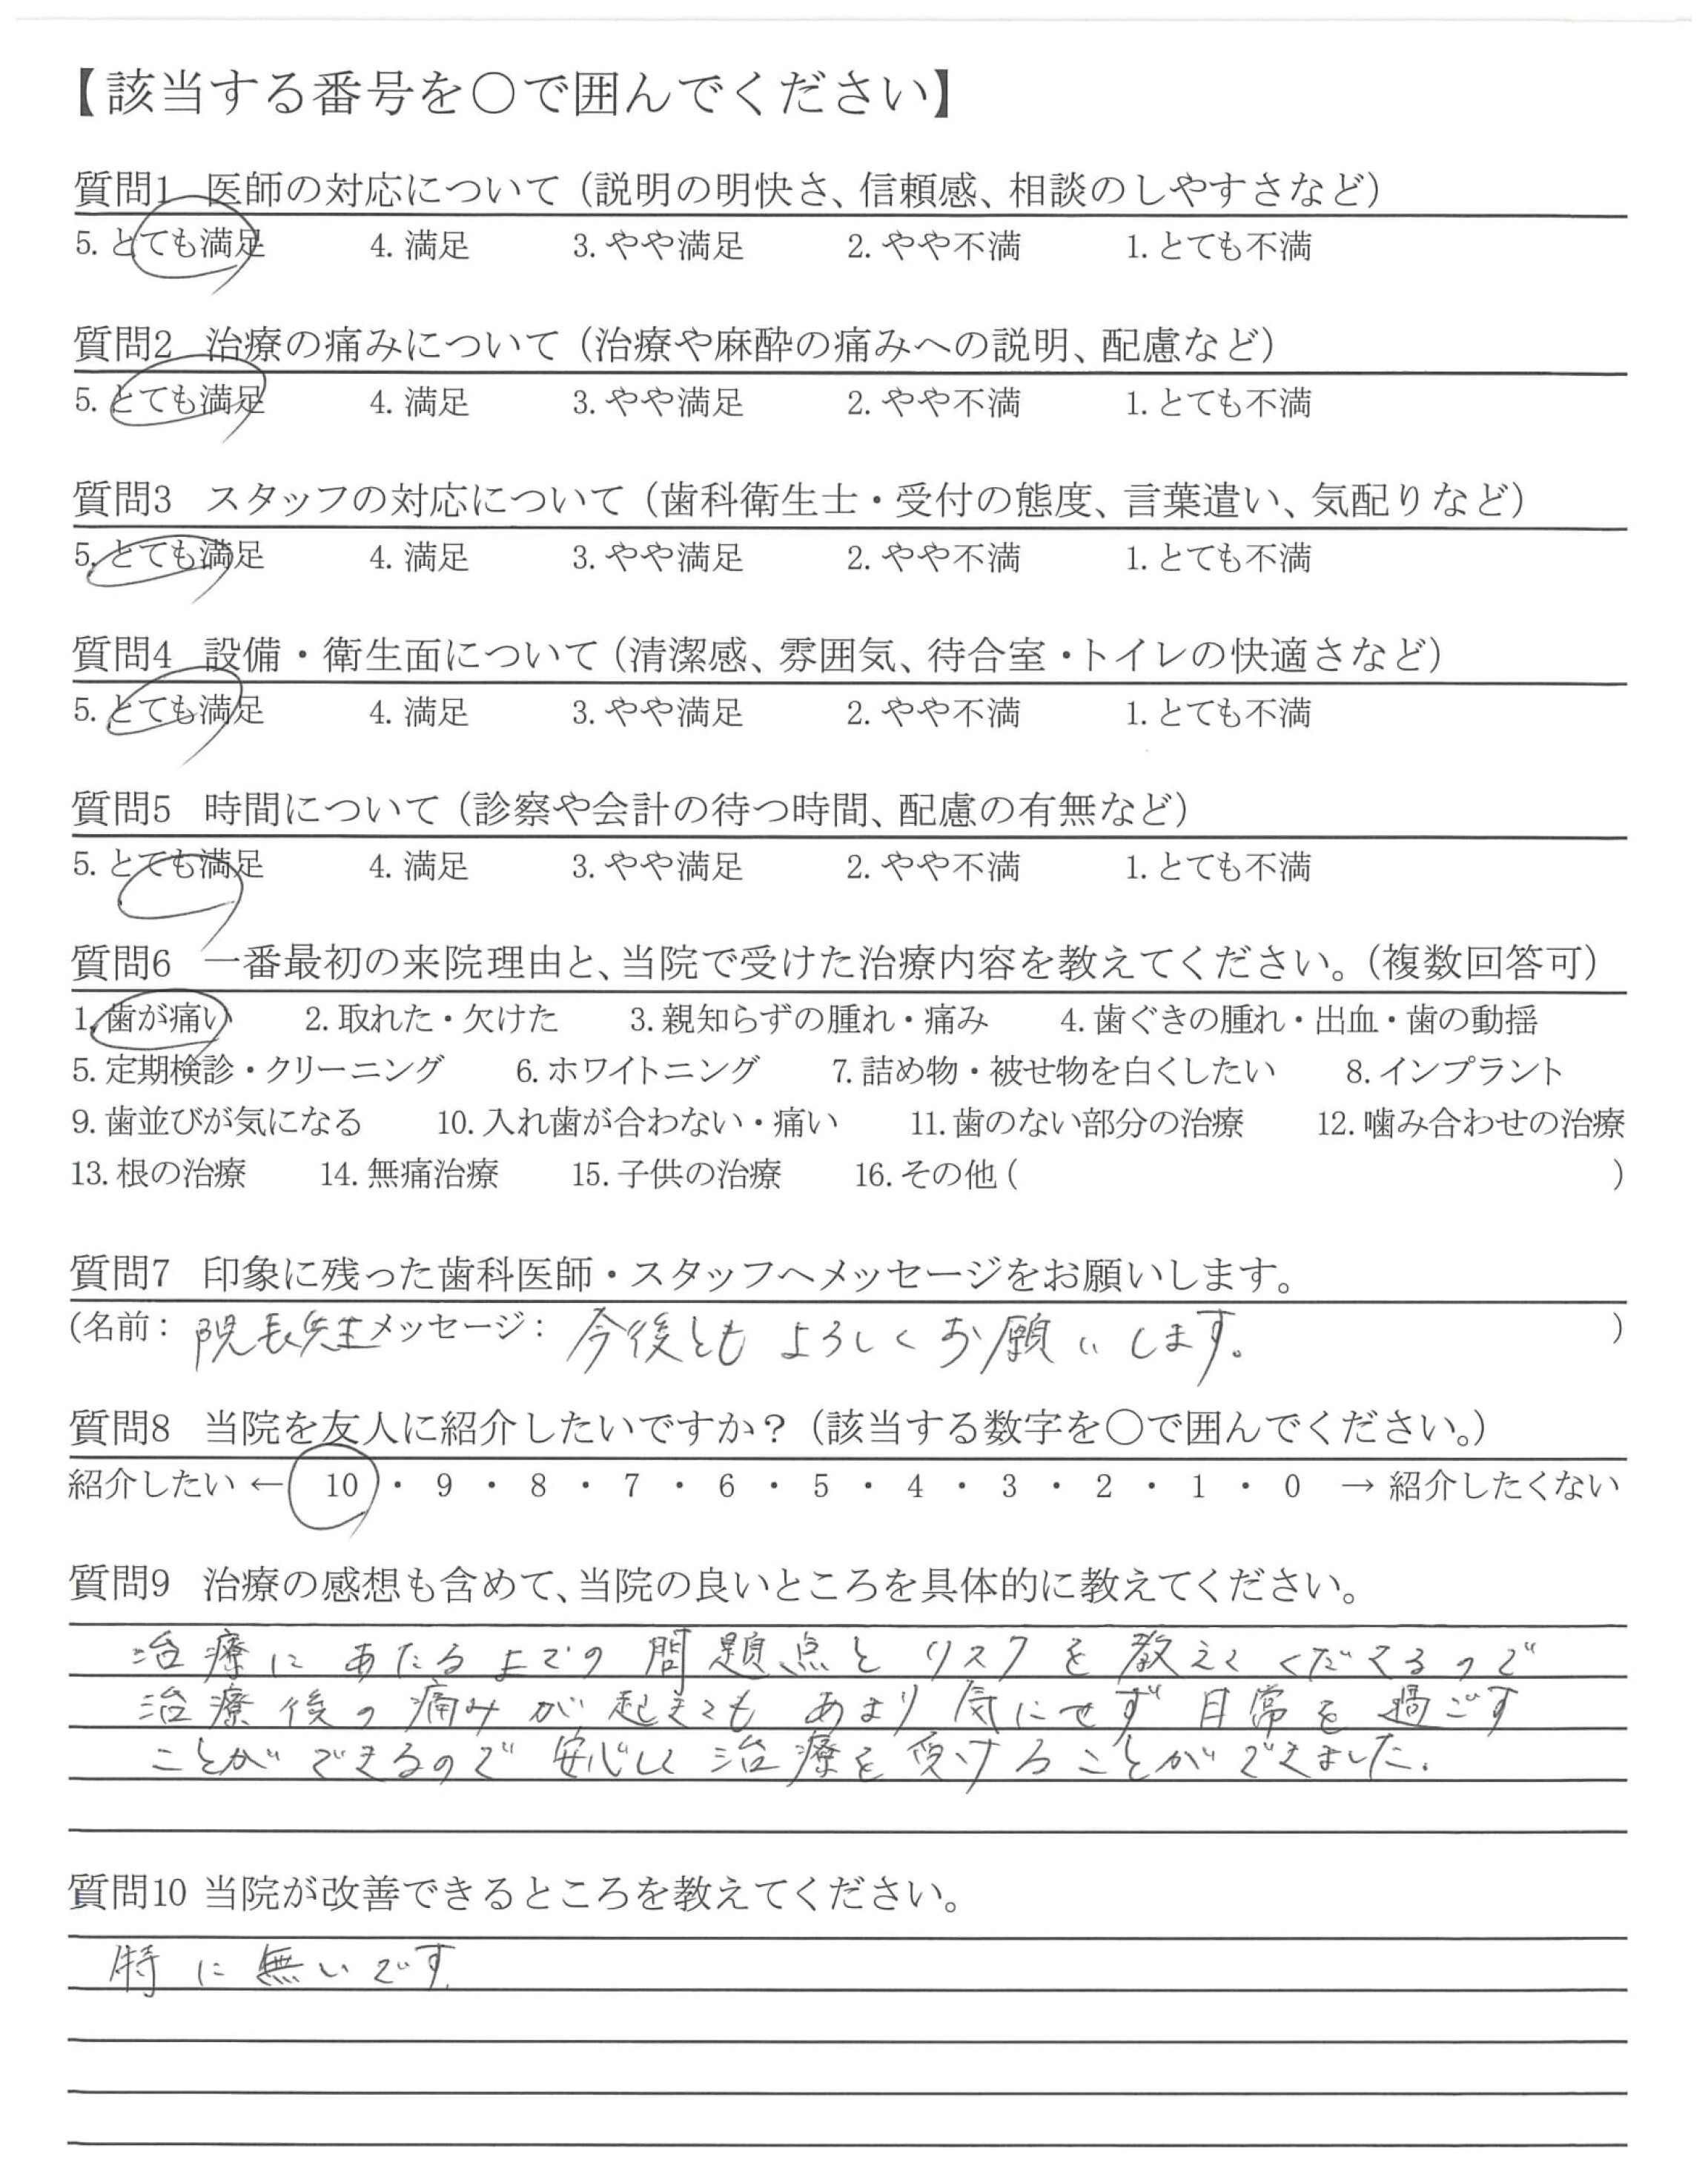 【該当する番号を〇で囲んでください】
質問1 医師の対応について（説明の明快さ、信頼感、相談のしやすさなど）
5. とても満足 4. 満足 3. やや満足 2. やや不満 1. とても不満
質問2 治療の痛みについて（治療や麻酔の痛みへの説明、配慮など）
5. とても満足 4. 満足 3. やや満足 2. やや不満 1. とても不満
質問3 スタッフの対応について（歯科衛生士・受付の態度、言葉遣い、気配りなど）
5. とても満足 4. 満足 3. やや満足 2. やや不満 1. とても不満
質問4 設備・衛生面について（清潔感、雰囲気、待合室・トイレの快適さなど）
5. とても満足 4. 満足 3. やや満足 2. やや不満 1. とても不満
質問5 時間について（診察や会計の待つ時間、配慮の有無など）
5. とても満足 4. 満足 3. やや満足 2. やや不満 1. とても不満
質問6 一番最初の来院理由と、当院で受けた治療内容を教えてください。（複数回答可）
1. 歯が痛い 2. 取れた・欠けた 3. 親知らずの腫れ・痛み 4. 歯ぐきの腫れ・出血・歯の動揺
5. 定期検診・クリーニング 6. ホワイトニング 7. 詰め物・被せ物を白くしたい 8. インプラント
9. 歯並びが気になる 10. 入れ歯が合わない・痛い 11. 歯のない部分の治療 12. 噛み合わせの治療
13. 根の治療 14. 無痛治療 15. 子供の治療 16. その他（ ）
質問7 印象に残った歯科医師・スタッフへメッセージをお願いします。
（名前： 院長先生 メッセージ： 今後ともよろしくお願いします。 ）
質問8 当院を友人に紹介したいですか？（該当する数字を〇で囲んでください。）
紹介したい ← 10 ・ 9 ・ 8 ・ 7 ・ 6 ・ 5 ・ 4 ・ 3 ・ 2 ・ 1 ・ 0 → 紹介したくない
質問9 治療の感想も含めて、当院の良いところを具体的に教えてください。
治療にあたる上での問題点とリスクを教えてくださるので
治療後の痛みが起きてもあまり気にせず日常を過ごす
ことができるので安心して治療を受けることができました.
質問10 当院が改善できるところを教えてください。
特に無いです.